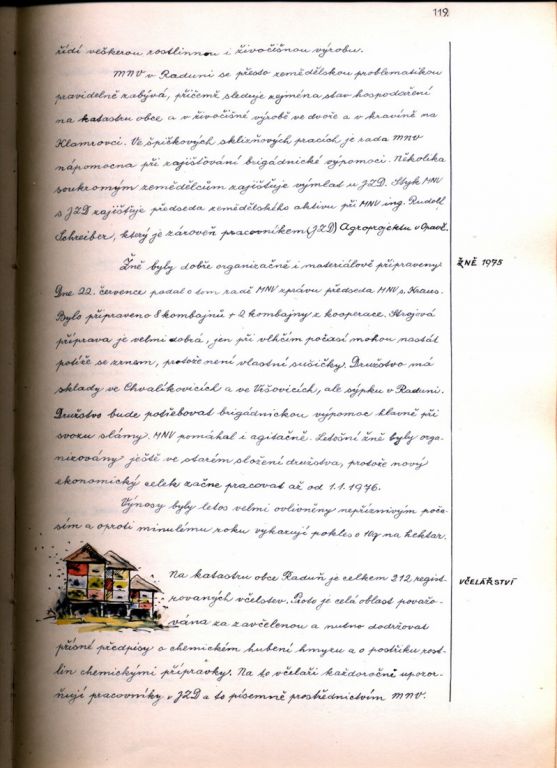 119
řídí veškerou rostlinnou i živočišnou výrobu.
MNV v Raduni se přesto zemědělskou problematikou
pravidelně zabývá, přičemž sleduje zejména stav hospodaření
na katastru obce a v živočišné výrobě ve dvoře a v kravíně na
Klamrovci. Ve špičkových sklizňových pracích je rada MNV
nápomocna při zajišťování brigádnické výpomoci. Několika
soukromým zemědělcům zajišťuje výmlat u JZD. Styk MNV
s JZD zajišťuje předseda zemědělského aktivu při MNV ing. Rudolf
Schreiber, který je zároveň pracovníkem (JZD) Agroprojektu v Opavě.
Žně byly dobře organizačně i materiálově připraveny
ŽNĚ 1975
Dne 22. července podal o tom radě MNV zprávu předseda MNV s. Kraus.
Bylo připraveno 8 kombajnů + 2 kombajny z kooperace. Strojová
příprava je velmi dobrá, jen při vlhčím počasí mohou nastát
potíže se zrnem, protože není vlastní sušičky. Družstvo má
sklady ve Chvalíkovicích a ve Vršovicích, ale sýpku v Raduni.
Družstvo bude potřebovat brigádnickou výpomoc hlavně při
svozu slámy. MNV pomáhal i agitačně. Letošní žně byly orga-
nizovány ještě ve starém složení družstva, protože nový
ekonomický celek začne pracovat až od 1.1.1976.
Výnosy byly letos velmi ovlivněny nepříznivým poča-
sím a oproti minulému roku vykazují pokles o 10q na hektar.
Na katastru obce Raduň je celkem 212 regist-
VČELAŘSTVÍ
rovaných včelstev. Proto je celá oblast považo-
vána za zavčelenou a nutno dodržovat
přísné předpisy o chemickém hubení hmyzu a o postřiku rost-
lin chemickými přípravky. Na to včelaři každoročně upozor-
ňují pracovníky v JZD a to písemně prostřednictvím MNV.